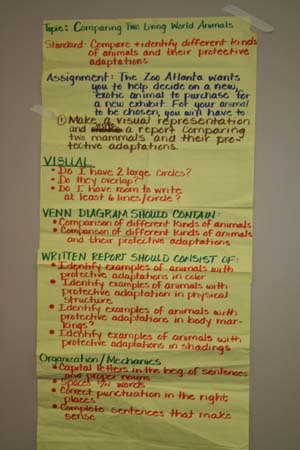 Topic: Comparing Two Living World Animals
Standard: Compare + identify different kinds
of animals and their protective
adaptations
Assignment: The Zoo Atlanta wants
you to help decide on a new,
exotic animal to purchase for
a new exhibit. For your animal
to be chosen, you will have to:
① Make a visual representation
and a report comparing
two mammals and their pro-
tective adaptations.
VISUAL
• Do I have 2 large circles?
• Do they overlap?
• Do I have room to write
at least 6 lines/circle?
VENN DIAGRAM SHOULD CONTAIN:
• Comparison of different kinds of animals
• Comparison of different kinds of animals
and their protective adaptations
WRITTEN REPORT SHOULD CONSIST OF:
• Identify examples of animals with
protective adaptations in color
• Identify examples of animals with
protective adaptation in physical
structure
• Identify examples of animals with
protective adaptations in body mar-
kings?
• Identify examples of animals with
protective adaptations in shadings
Organization/Mechanics
• Capital letters in the beg. of sentences
and proper nouns
• Spaces btn words
• Correct punctuation in the right
places
• Complete sentences that make
sense